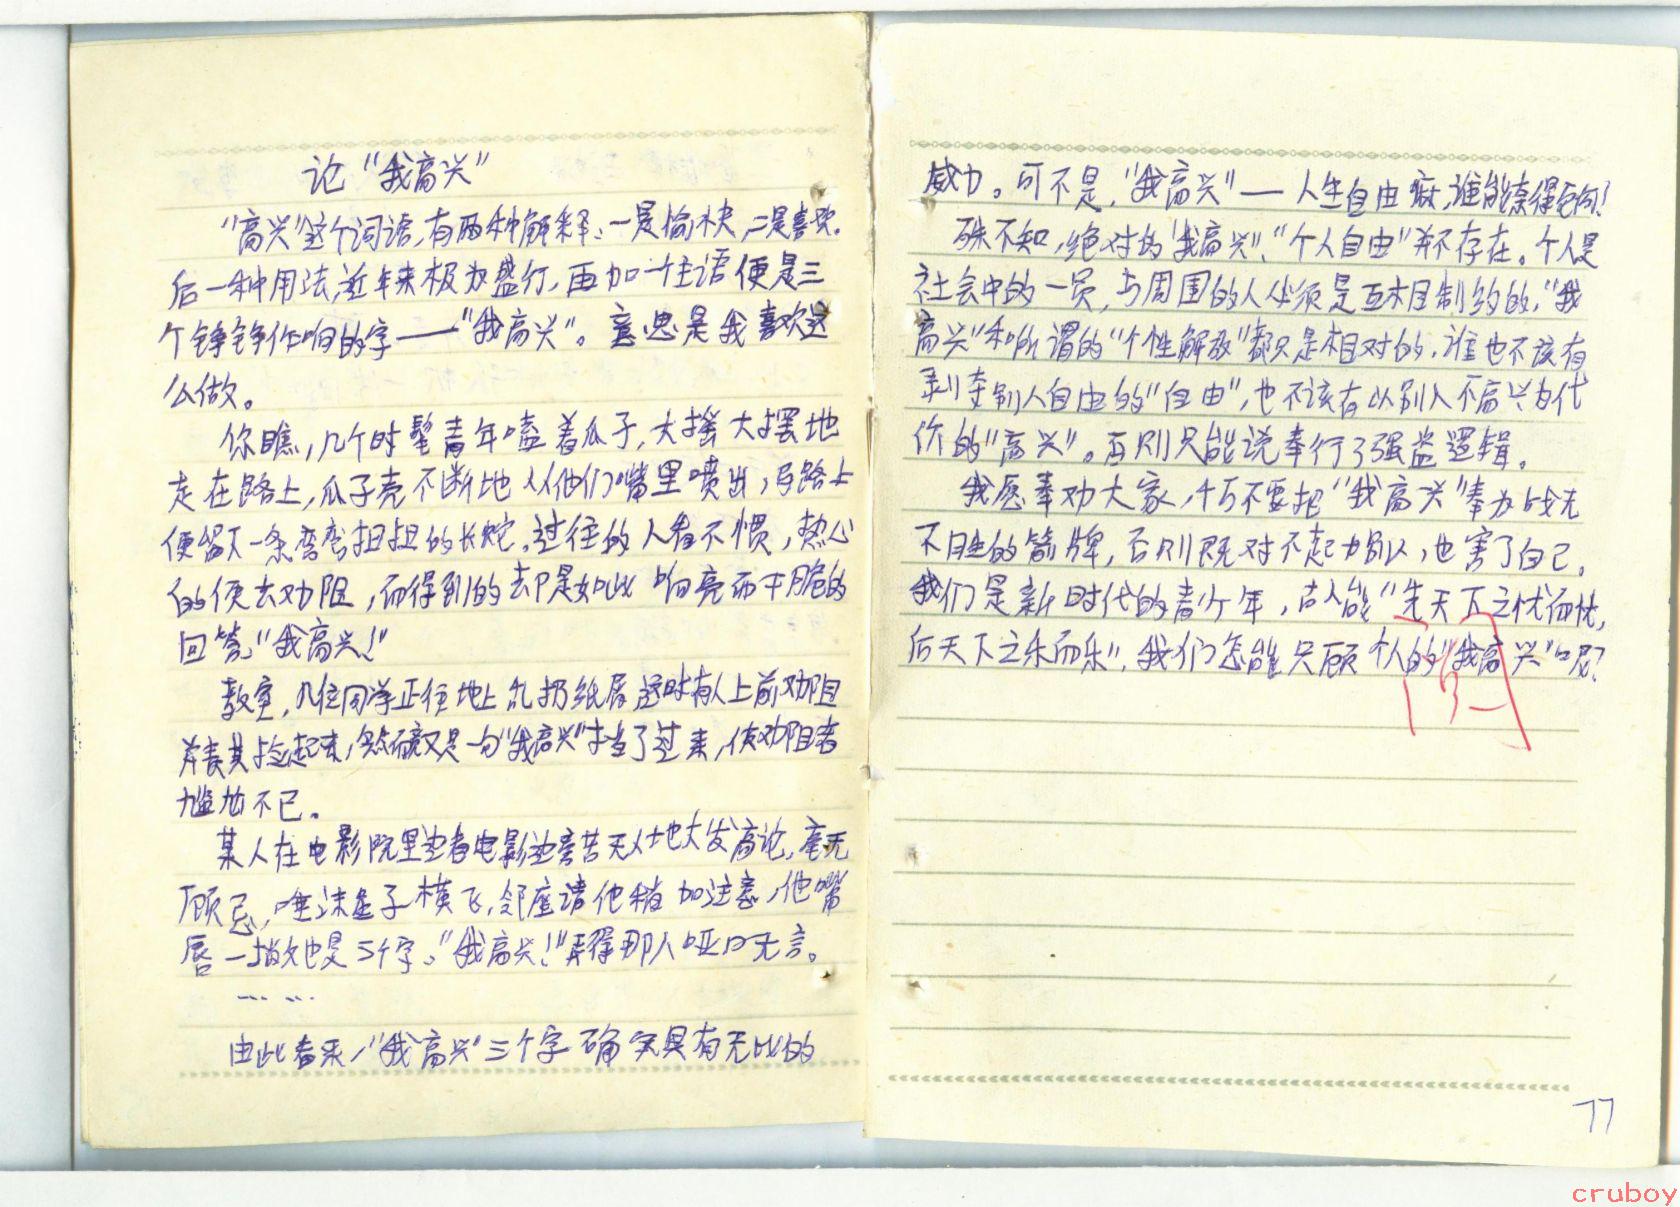 论“我高兴”
“高兴”这个词语，有两种解释：一是愉快，二是喜欢。
后一种用法，近年来极为盛行，再加一个主语便是三
个铮铮作响的字——“我高兴”。意思是我喜欢这
么做。
你瞧，几个时髦青年嗑着瓜子，大摇大摆地
走在路上，瓜子壳不断地从他们嘴里喷出，马路上
便留下一条弯弯扭扭的长蛇。过往的人看不惯，热心
的便去劝阻，而得到的却是如此响亮而干脆的
回答：“我高兴！”
教室，几位同学正往地上乱扔纸屑，这时有人上前劝阻
并责其捡起来，又是一句“我高兴”挡了过来，使劝阻者
尴尬不已。
某人在电影院里边看电影边旁若无人地大发高论，毫无
顾忌，唾沫星子横飞，邻座请他稍加注意，他嘴
唇一撇也是三个字：“我高兴！”弄得那人哑口无言。
……
由此看来，“我高兴”三个字确实具有无比的
威力。可不是，“我高兴”——人生自由嘛，谁能奈得我何？
殊不知，绝对的“我高兴”、“个人自由”并不存在。个人是
社会中的一员，与周围的人必须是互相制约的，“我
高兴”和所谓的“个性解放”都只是相对的，谁也不该有
剥夺别人自由的“自由”，也不该有以别人不高兴为代
价的“高兴”。否则只能说奉行了强盗逻辑。
我愿奉劝大家，千万不要把“我高兴”奉为战无
不胜的箭牌，否则既对不起别人，也害了自己。
我们是新时代的青少年，古人能“先天下之忧而忧，
后天下之乐而乐”，我们怎能只顾个人的“我高兴”呢？
77
cruboy